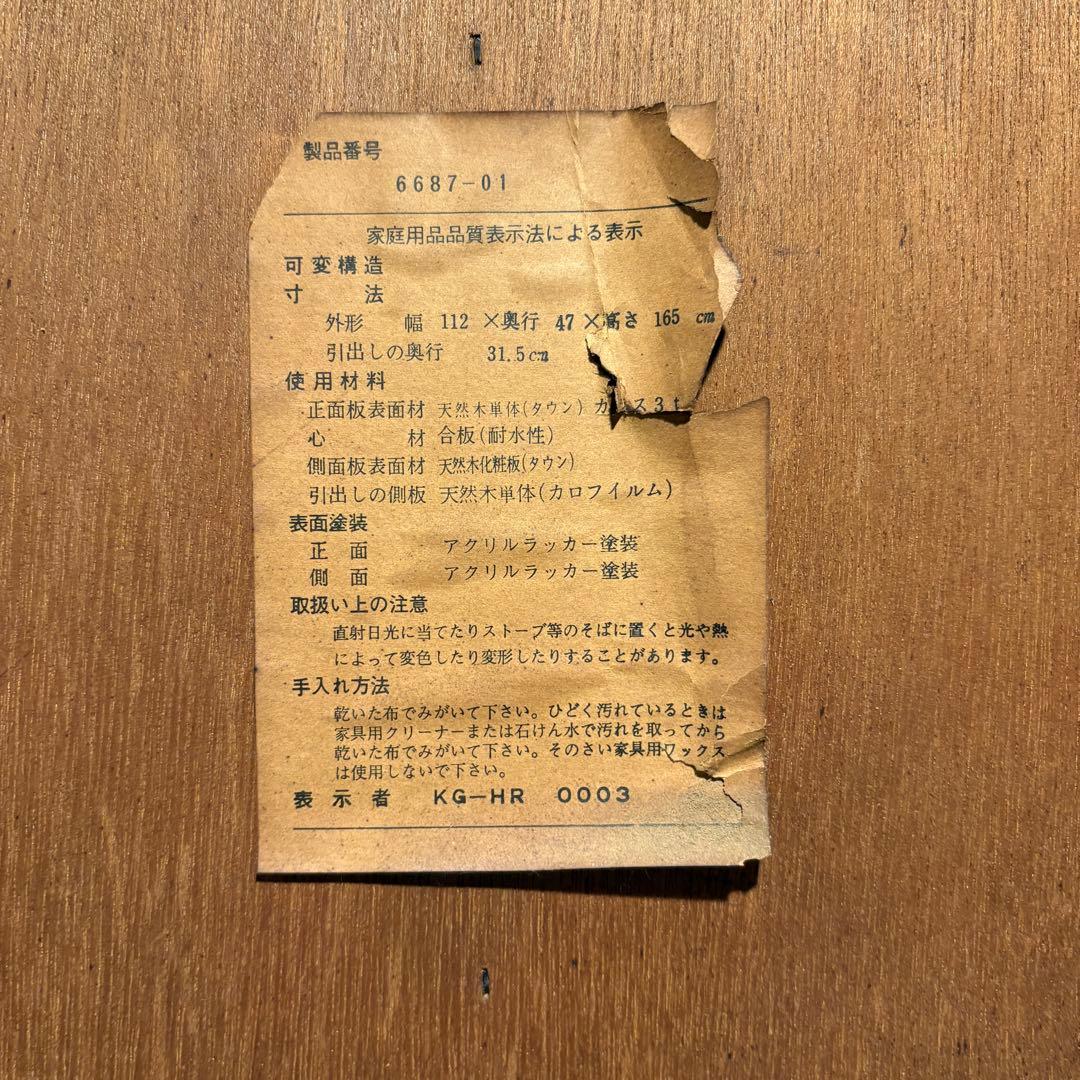 製品番号
6687-01
家庭用品品質表示法による表示
可変構造
寸 法
外形 幅 112 ×奥行 47 ×高さ 165 cm
引出しの奥行 31.5cm
使用材料
正面板表面材 天然木単体(タウン) ガラス3t
心 材 合板(耐水性)
側面板表面材 天然木化粧板(タウン)
引出しの側板 天然木単体(カロフイルム)
表面塗装
正 面 アクリルラッカー塗装
側 面 アクリルラッカー塗装
取扱い上の注意
直射日光に当てたりストーブ等のそばに置くと光や熱
によって変色したり変形したりすることがあります。
手入れ方法
乾いた布でみがいて下さい。ひどく汚れているときは
家具用クリーナーまたは石けん水で汚れを取ってから
乾いた布でみがいて下さい。そのさい家具用ワックス
は使用しないで下さい。
表示者 KG-HR 0003